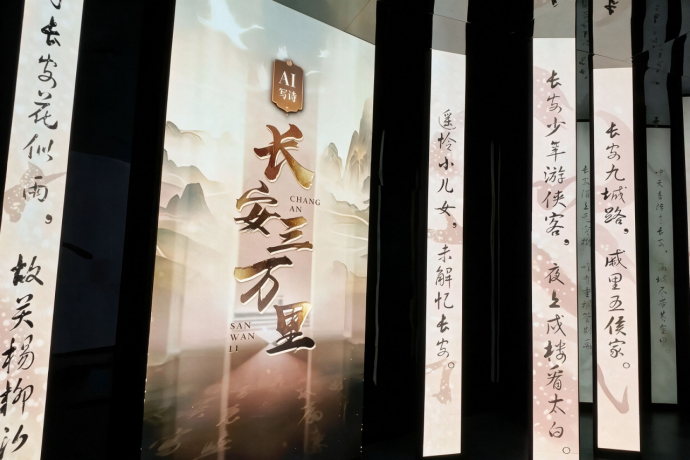 长安花似雨，故关杨柳
AI
写诗
长安三万里
CHANG
AN
SAN
WAN
LI
遥怜小儿女，未解忆长安。
长安少年游侠客，夜上戍楼看太白。
长安九城路，戚里五侯家。